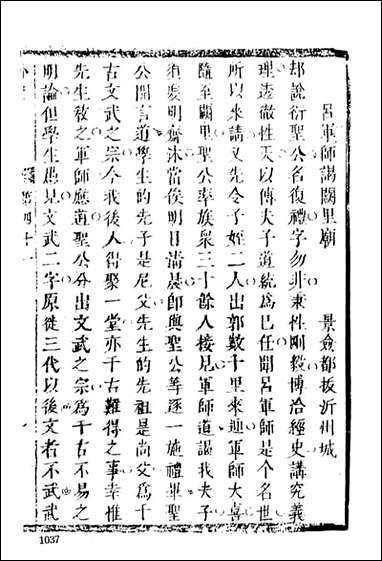 呂軍師謁闕里廟　景僉都扳沂州城
却說衍聖公名復禮字勿非秉性剛毅博洽經史講究義
理透徹性天以傳夫子道統爲巳任聞呂軍師是个名世
所以來請又先令子姪二人出郭數十里來迎軍師大喜
隨至闕里聖公率族衆三十餘人接見軍師道謁我夫子
須要明齋沐當俟明日淸晨卽與聖公等逐一施禮畢聖
公開言道學生的先子是尼父先生的先祖是尚父爲千
古文武之宗今我後人得聚一堂亦千古難得之事幸惟
先生敎之軍師應道聖公分出文武之宗爲千古不易之
明論但學生愚見文武二字原從三代以後文者不武武
第四十一
1037